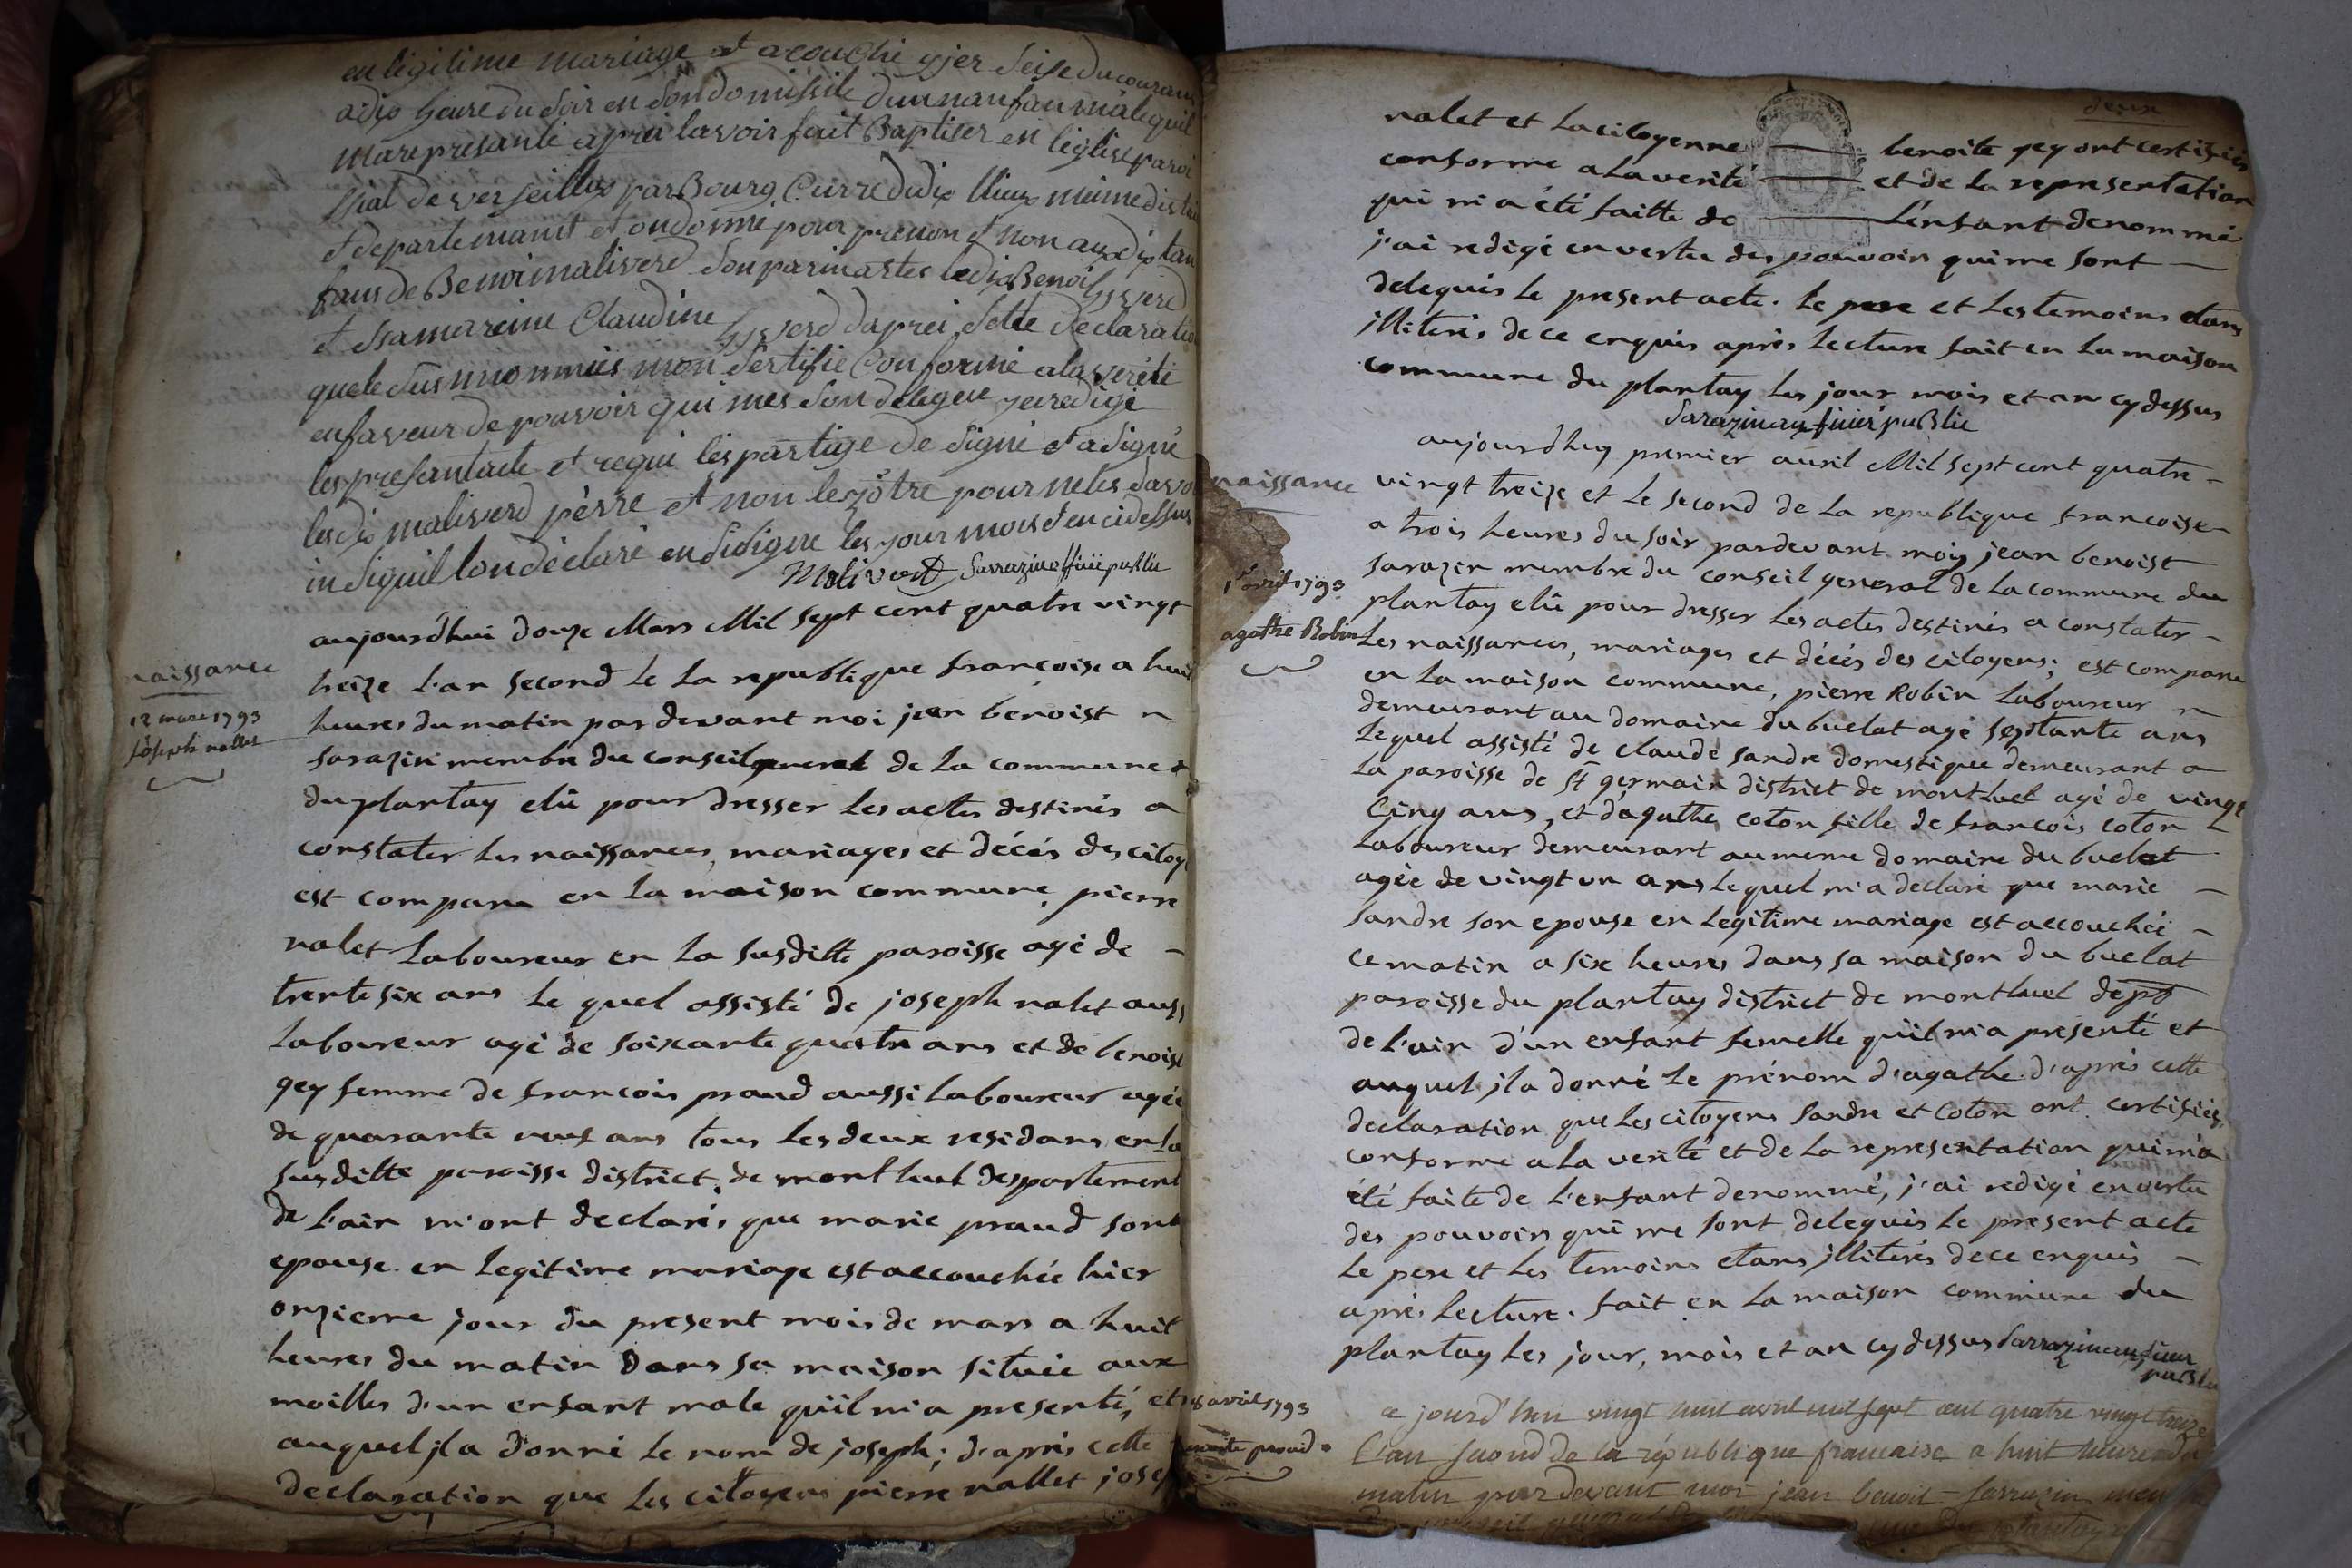 en légitime mariage et a couché yjer seise du courant
a dix heure du soir en son domissile d'un nanfan mâle quil
ma représanté aprei lavoir fait Baptiser en léglise paroi
ssial de verseilleux par Bourg Curre dudix llieux meime distri
et departemant et on donne pour prenon et non audix tan
fans de Benoi maliverd son parin a etes ledix Benoi
et sa mareine Claudine daprei sette declaration
que le susnnommés mon sertifie Conforme a la vereté
en faveur de pouvoir qui mes son delegue jei redige
les presantacte et requi les partige de signé et a signé
lesdix maliverd pèrre et non les otre pour neles savoi
in siquil lon déclaré en sidigne les jour mois et en ci dessus
Malivert Sarrazin officié publie
aujourd'hui douze Mars Mil sept cent quatre vingt
naissance
treize l'an second de la republique françoise a huit
12 mars 1793
heures du matin par devant moi jean benoist
joseph nallet
sarazin membre du conseil general de la commune
du plantay elû pour dresser les actes destinés a
constater les naissances, mariages et décés des citoy
est comparu en la maison commune, pierre
nalet laboureur en la susditte paroisse agé de
trente six ans le quel assisté de joseph nalet auss
laboureur agé de soixante quatre ans et de benoist
gey femme de francois praud aussi laboureur agée
de quarante neuf ans tous les deux residans en la
susditte paroisse district de montluel despartement
de l'ain m'ont declarés que marie praud sont
epouse en legitime mariage est accouchée hier
onzieme jour du present mois de mars a huit
heures du matin dans sa maison située aux
moilles d'un enfant male qu'il m'a presenté, et
auquel jl a donné le nom de joseph; d'aprés cette
declaration que les citoyens pierre nallet jose
deux
nalet et la citoyenne benoite gey ont certifiés
conforme a la verité et de la representation
qui m'a été faitte de l'enfant denommé
MINUTE
j'ai redigé en vertu des pouvoirs qui me sont
delegués le present acte. le pere et les temoins etans
jlliterés de ce enquis aprés lecture fait en la maison
commune du plantay les jour mois et an cy dessus
Sarazin officié publie
aujourd'huy premier avril Mil sept cent quatre
naissance
vingt treize et le second de la republique francoise
a trois heures du soir pardevant moi jean benoist
1er avril 1793
sarazin membre du conseil general de la commune du
plantay elû pour dresser les actes destinés a constater
agathe Robin
les naissances, mariages et décés des citoyens; est comparu
en la maison commune, pierre Robin laboureur
demeurant au domaine du buclat agé septante ans
lequel assisté de claude sandre domestique demeurant a
la paroisse de st germain district de montluel agé de vingt
cinq ans, et d'agathe coton fille de francois coton
laboureur demeurant au meme domaine du buclat
agée de vingt un ans lequel m'a declaré que marie
sandre son epouse en legitime mariage est accouchée
ce matin a six heures dans sa maison du buclat
paroisse du plantay district de montluel dept
de l'ain d'un enfant femelle qu'il m'a presenté et
auquel jl a donné le prénom d'agathe d'aprés cette
declaration que les citoyens sandre et coton ont certifiés
conforme a la verité et de la representation qui m'a
été faite de l'enfant denommé, j'ai redigé en vertu
des pouvoirs qui me sont delegués le present acte
le pere et les temoins etans jlliterés de ce enquis
aprés lecture. fait en la maison commune du
plantay les jour, mois et an cy dessus Sarrazin officier
publie
28 avril 1793
ce jourd'hui vingt huit avril mil sept cent quatre vingt treize
benoite praud
l'an second de la république francaise a huit heure du
matin par devant moi jean benoit Sarrazin mem